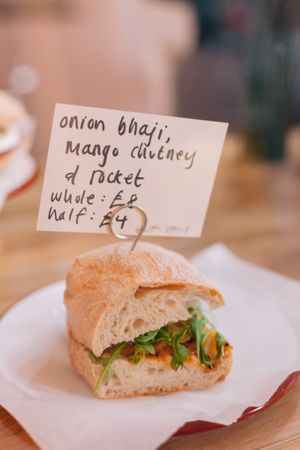 onion bhaji,
Mango chutney
& rocket
whole: £8
half: £4